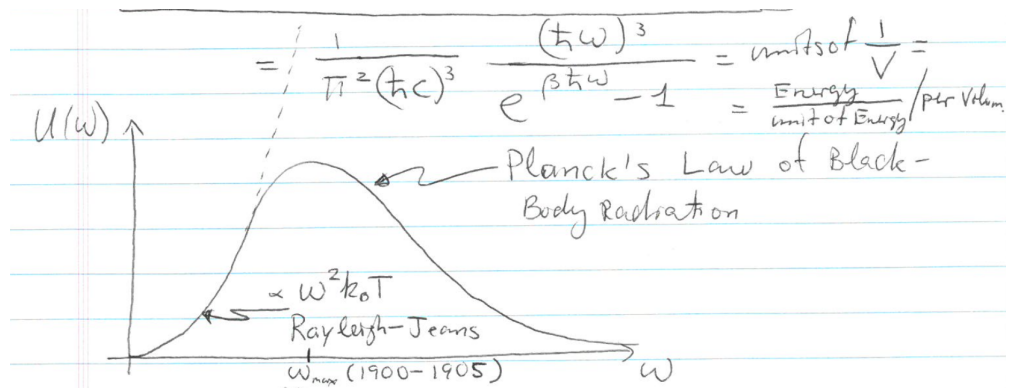 = 1/(π²(ħc)³) (ħω)³/(e^{βħω} - 1) = units of 1/V =
= Energy/unit of Energy / per Volum.
U(ω)
Planck's Law of Black-
Body Radiation
∝ ω²k₀T
Rayleigh-Jeans
ω_max (1900-1905)
ω